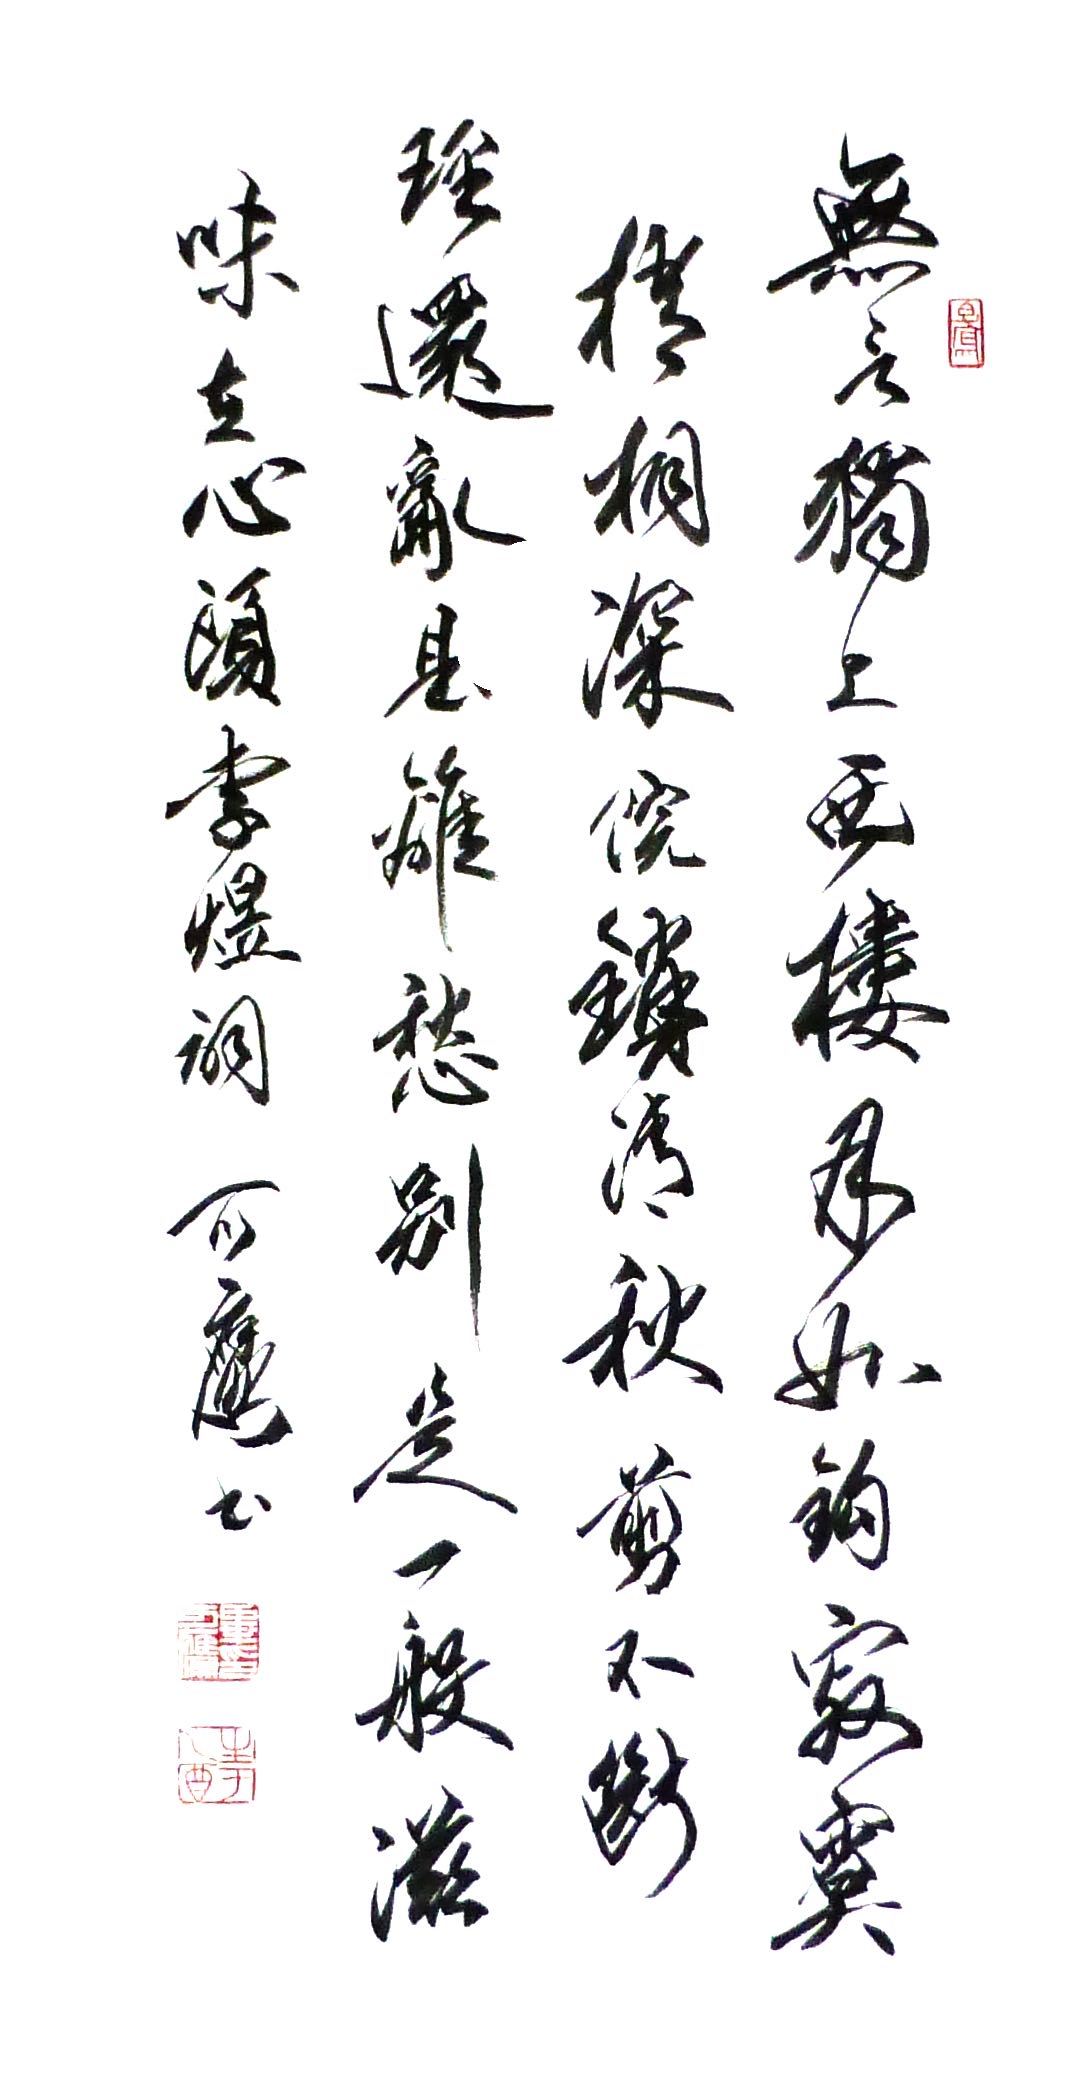 無言獨上西樓月如鉤寂寞
梧桐深院鎖清秋剪不斷
理還亂是離愁別是一般滋
味在心頭李煜詞書